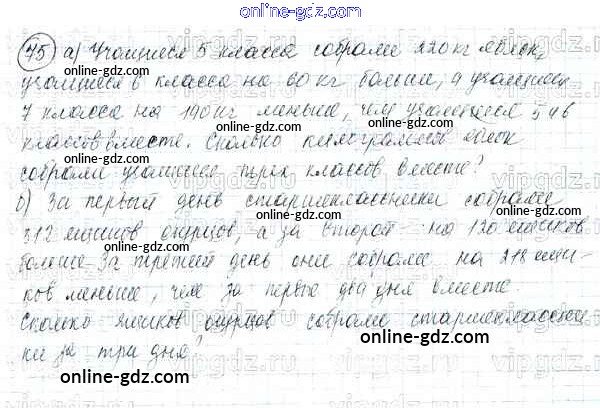 online-gdz.com
75 а) Учащиеся 5 класса собрали 220 кг яблок,
учащиеся 6 класса на 60 кг больше, а учащиеся
7 класса на 190 кг меньше, чем учащиеся 5 и 6
классов вместе. Сколько килограммов яблок
собрали учащиеся трех классов вместе?
б) За первый день старшеклассники собрали
312 ящиков огурцов, а за второй на 120 ящиков
больше. За третий день они собрали на 218 ящи-
ков меньше, чем за первые два дня вместе.
Сколько ящиков огурцов собрали старшеклассни
ки за три дня?
online-gdz.com